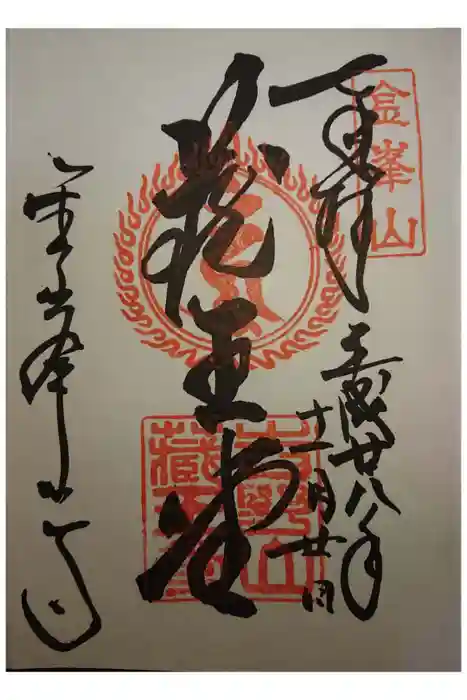 金峯山
奉拝
平成廿八年
十一月廿日
蔵王堂
吉野山
藏王堂
金峯山寺